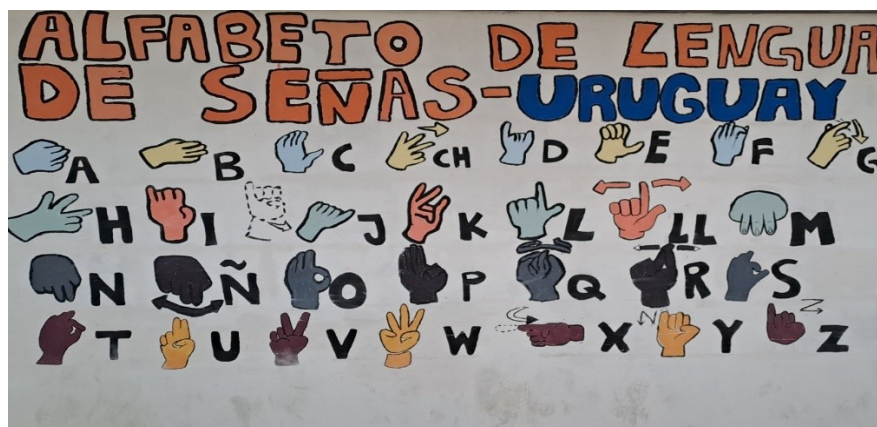 ALFABETO DE LENGUA
DE SEÑAS-URUGUAY
A B C CH D E F G
H I J K L LL M
N Ñ O P Q R S
T U V W X N Y Z Z